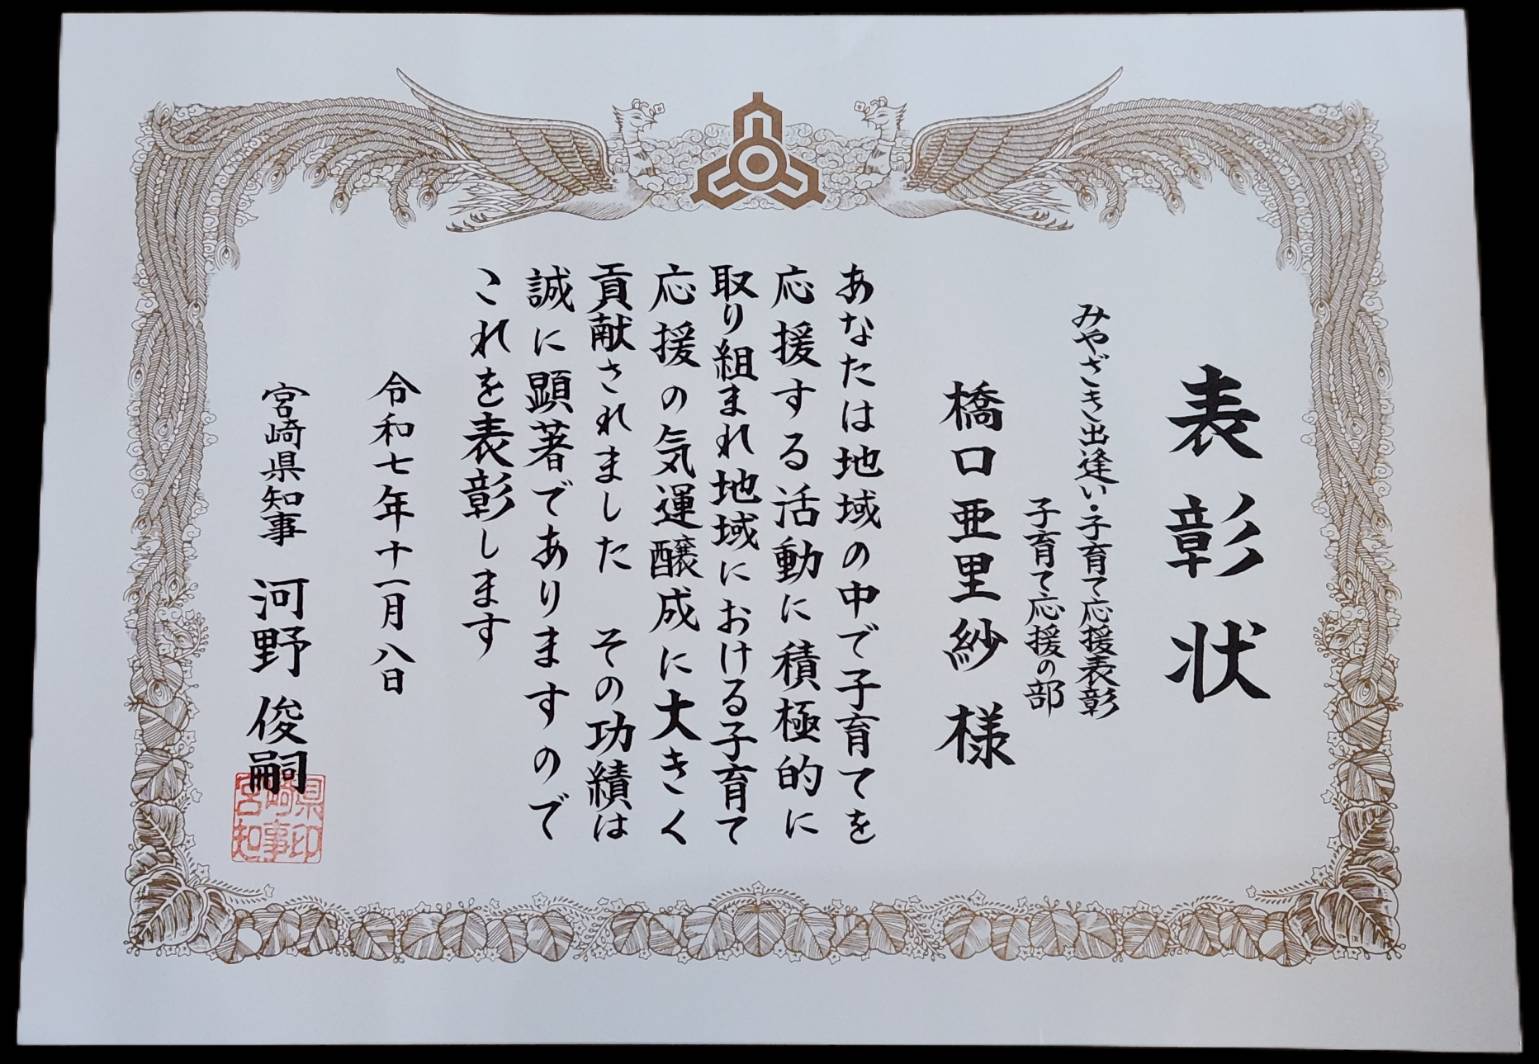 表彰状
みやざき出逢い・子育て応援表彰
子育て応援の部
橋口亜里紗様
あなたは地域の中で子育てを
応援する活動に積極的に
取り組まれ地域における子育て
応援の気運醸成に大きく
貢献されました その功績は
誠に顕著でありますので
これを表彰します
令和七年十一月八日
宮崎県知事 河野俊嗣
宮崎県知事印